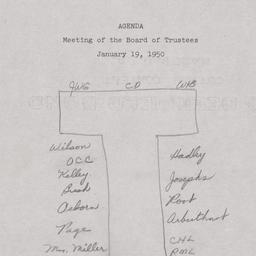 AGENDA
Meeting of the Board of Trustees
January 19, 1950
JWG CD WHB
Wilson
OCC
Kelley
Bush
Osborn
Page
Mrs. Miller
Hadley
Josephs
Root
Arbuthnot
CHL
RML